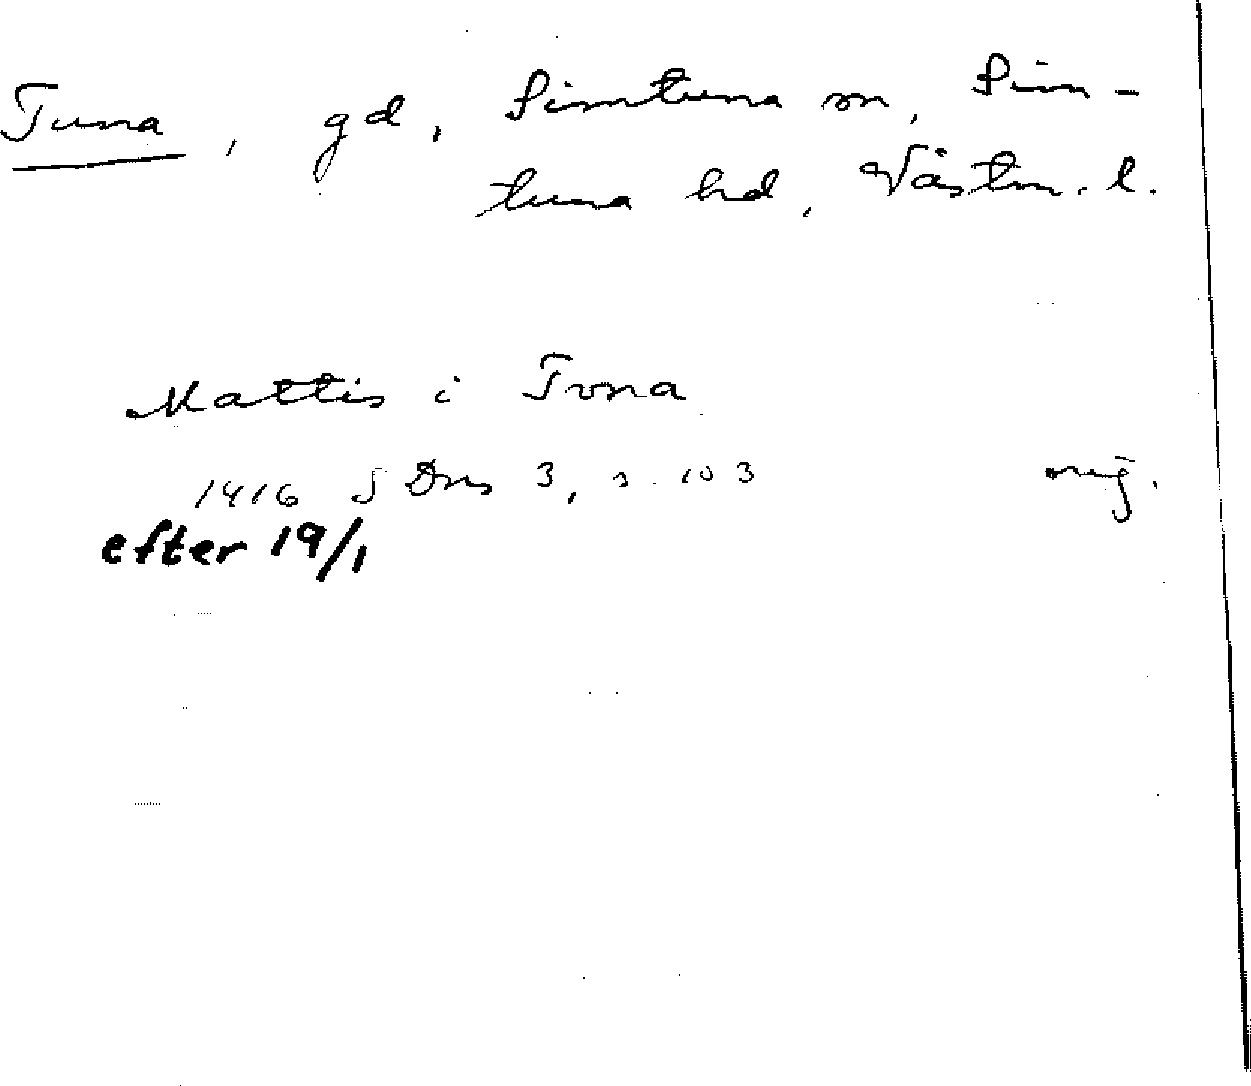 Tuna, gd, Simtuna sn, Sim-
tuna hd, Västm. l.
Mattis i Tvna
1416 SDns 3, s. 103 orig.
efter 19/1